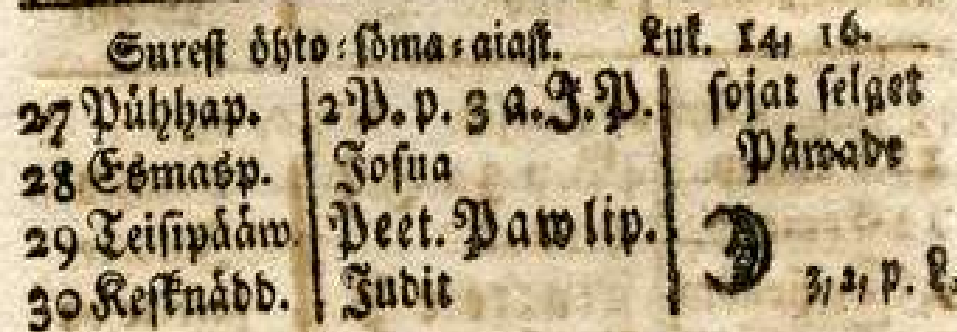 Surest öhto-söma-aiast. Luk. 14, 16.
27 Pühhap. 2 P. p. 3 a. J. P. sojat selget
28 Esmasp. Josua Päwade
29 Teisipääw. Peet. Pawlip.
30 Kesknädd. Judit 3, 2, p. L.